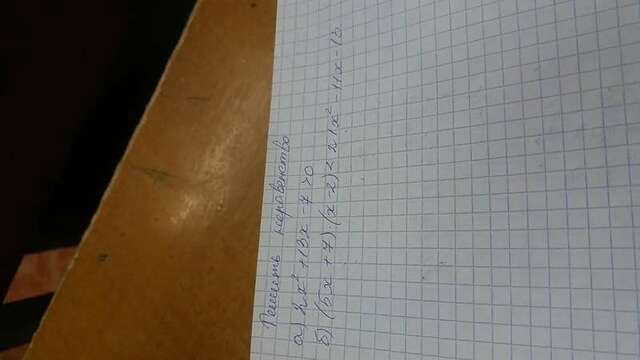 Решить неравенство
а) 2x² + 13x - 7 > 0
б) (5x + 7)·(x - 2) < 21x² - 11x - 13